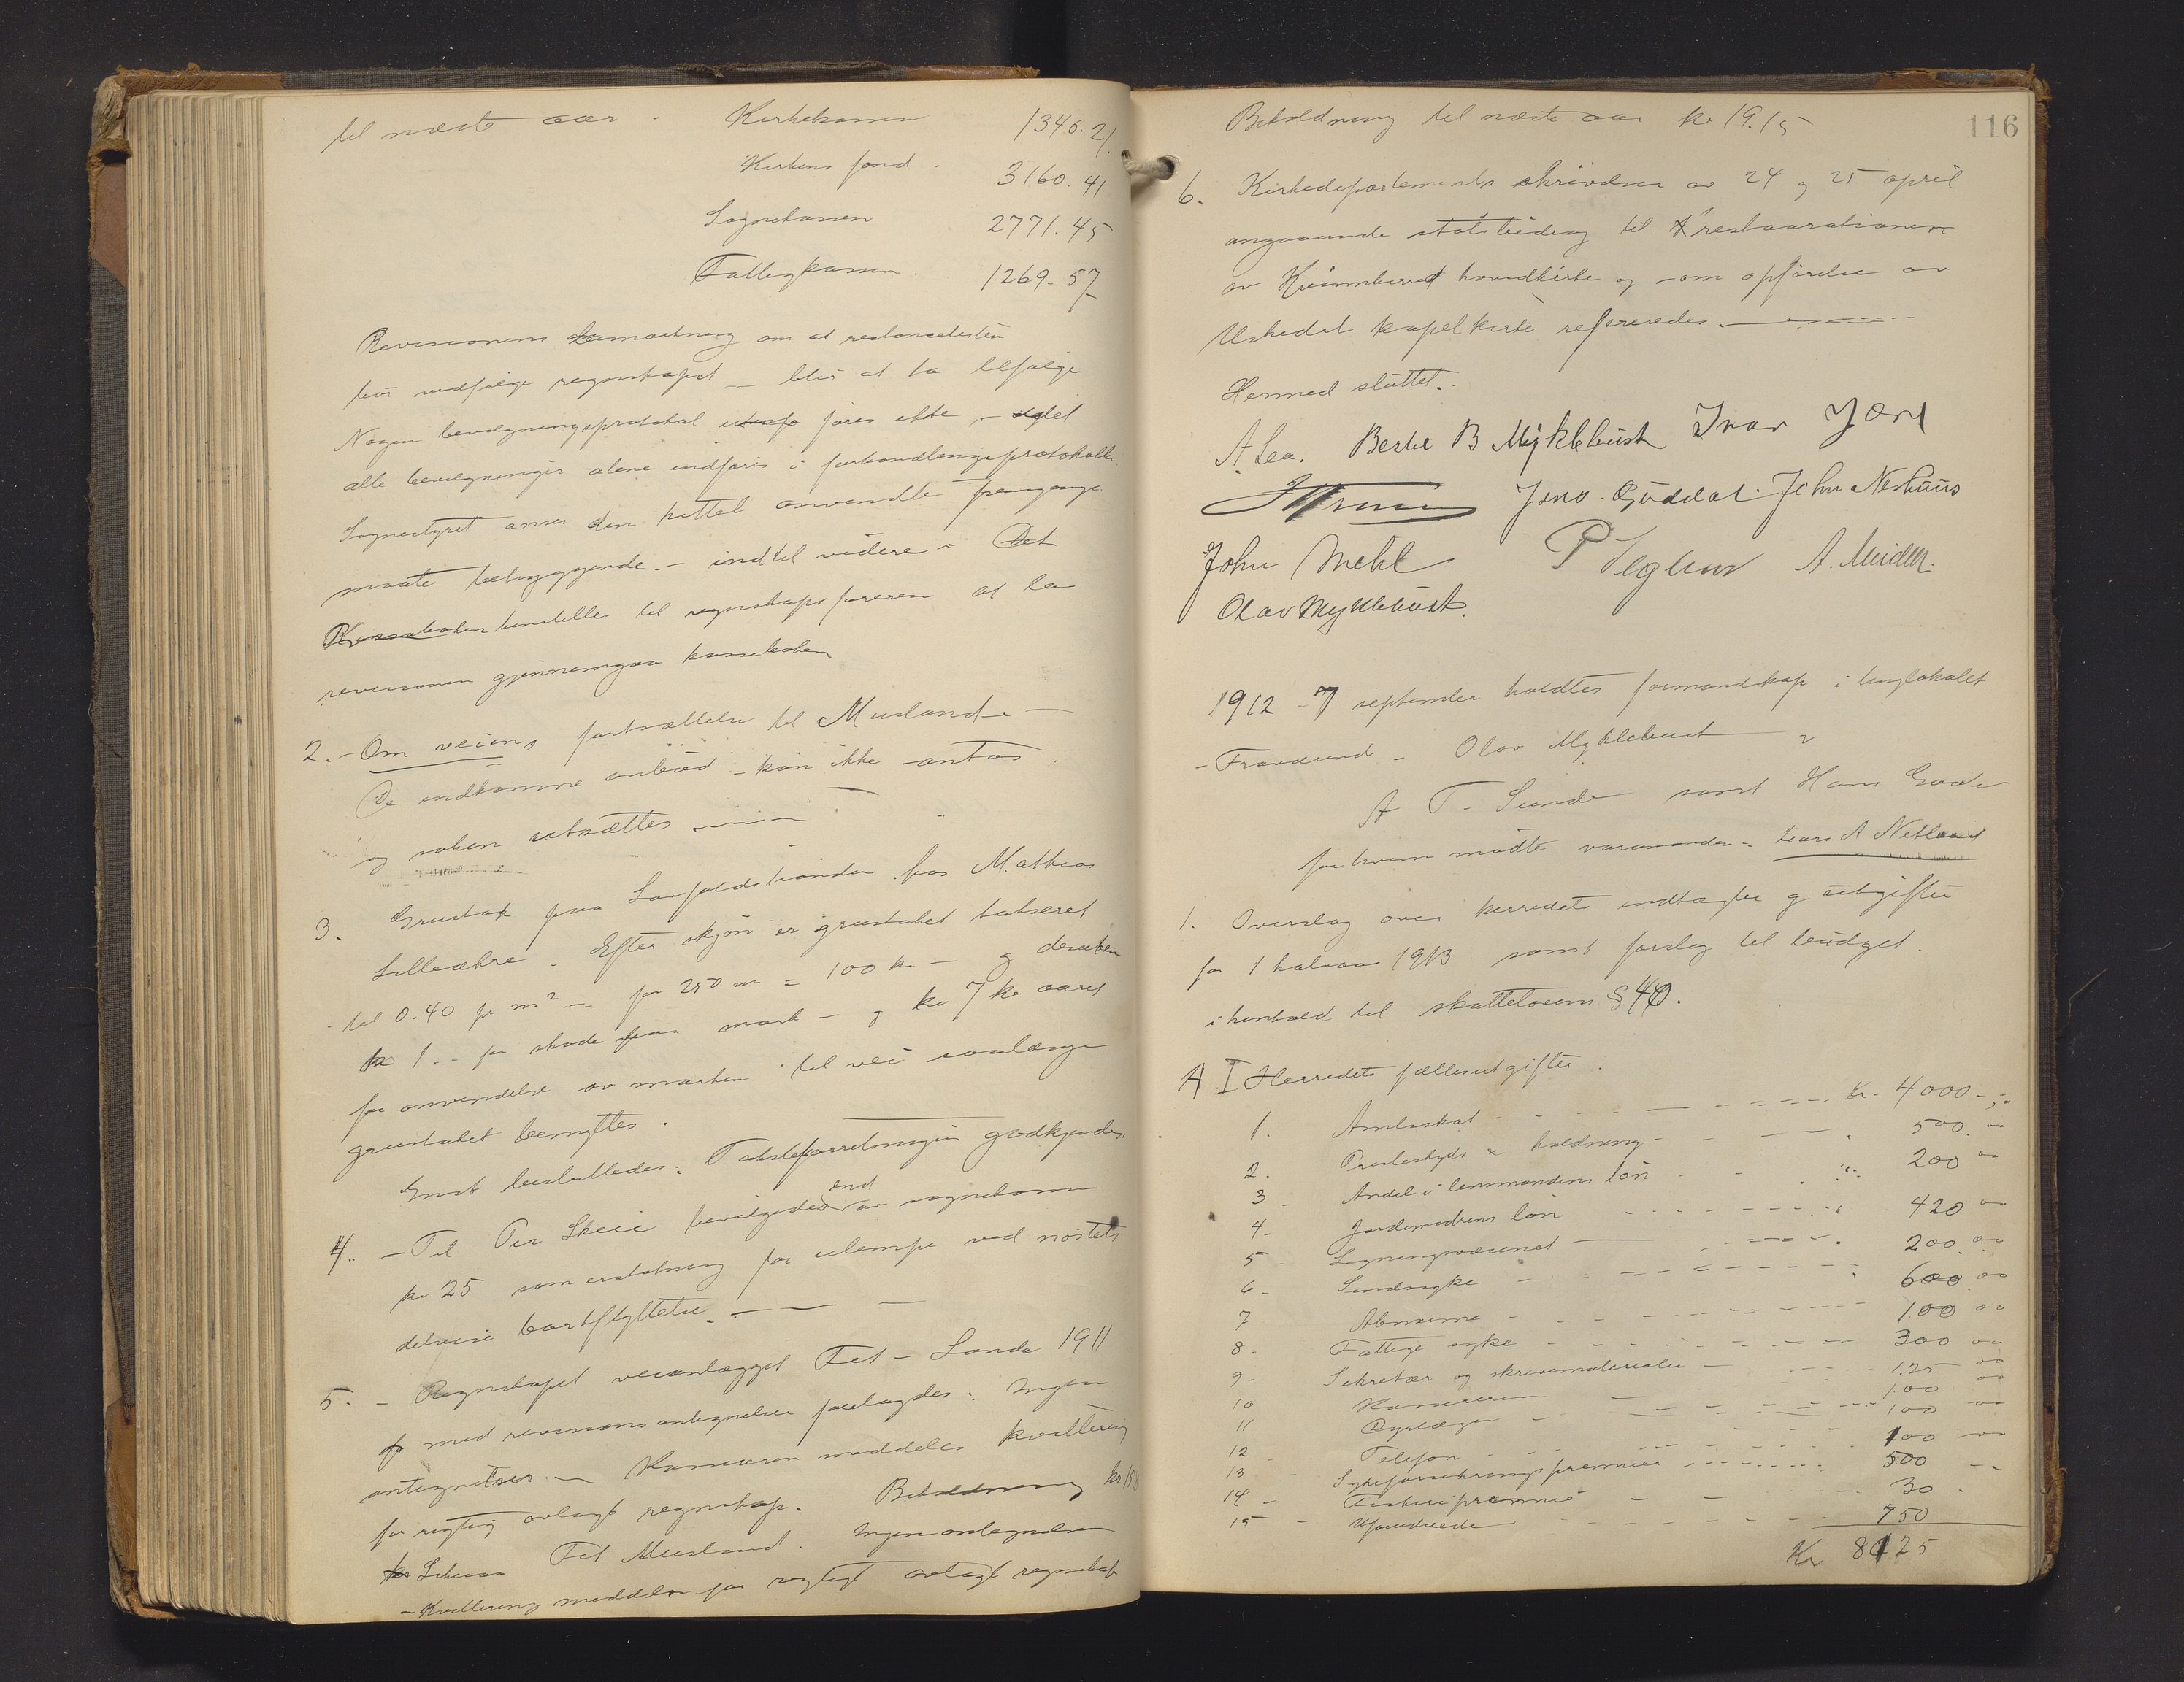 til næste aar - Kirkekassen 1346.21
Kirkens fond. 3160.41
Sognekassen 2771.45
Fattigkassen. 1269.57
Revisionens bemærkning om at restancelisten
bør vedføige regnskapet - blir at ta tilfølge
Nogen bevilgningsprotokol føres ikke, - idet
alle bevilgninger alene indføres i forhandlingsprotokollen.
Sognestyret anser den hittil anvendte fremgangs
maate betryggende. - indtil videre - Det
henstilles til regnskapsføreren at la
revisionen gjennemgaa kasseboken
2. - Om veiens fortsættelse til Musland -
De indkomne anbud - kan ikke antas
og saken utsættes
3. Grustak paa hos Mathias
Lilleækre. Efter skjøn er grustaket takseret
til 0.40 pr m2 - for 250 m = 100 kr - og desuten
kr 1 .- for skade paa mark - og kr 7 kr aaret
for anvendelse av marken til vei saalænge
grustaket benyttes.
Enst besluttedes: Takstforretningen godkjendes.
4. - Til Per Skeie bevilgedes end av sognekassen
kr 25 som erstatning for ulempe ved nøstets
delvise bortflyttelse.
5. - Regnskapet veianlægget Fet - Lande 1911
med revisions antegnelser forelagdes: Ingen
antegnelser. - Kassereren meddeles kvittering
for rigtig avlagt regnskap. Beholdning kr 15
Fet Musland. Ingen antegnelser
- Kvittering meddeles for rigtigt avlagt regnskap
116
Beholdning til næste aar kr 19.15
6. Kirkedepartements skrivelser av 24 og 25 april
angaaende statsbidrag til restaurationen
av Kvinnherred hovedkirke og - om opførelse av
Uskedal kapelkirke refereredes.
Hermed sluttet.
A. Lea. Bertel B Myklebust Ivar
Jens. Guddal. John Neshuus
John Mehl P A.
Olav Myklebust.
1912 - 7 september holdtes formandskap i tinglokalet
- Fraværend - Olav Myklebust &
A T. Sunde samt Hans
for hvem mødte varamanden - Lars A Netland
1. Overslag over herredets indtægter og utgifter
for 1 halvaar 1913 samt forslag til budget.
i henhold til skatteloven § 40.
A I Herredets fællesutgifter.
1. Amtsskat kr. 4000 -
2. Presteskyds & holdning 500. -
3 Andel i lensmandens løn 200 00
4 - Jordemødrens løn 420 00
5 - Ligningsvæsenet 200.00
6 - Sindssyke 600 00
7 Abnorme 100 00
8. Fattige syke 300 00
9 - Sekretær og skrivematerialier 125 00
10 Kassereren 100 00
11 Dyrlægen 100 00
12 Telefon 100 00
13 - Sykeforsikringspræmier 500 --
14 - Fiskeripræmie 30 -
15 - Uforudseede 750
Kr 8125